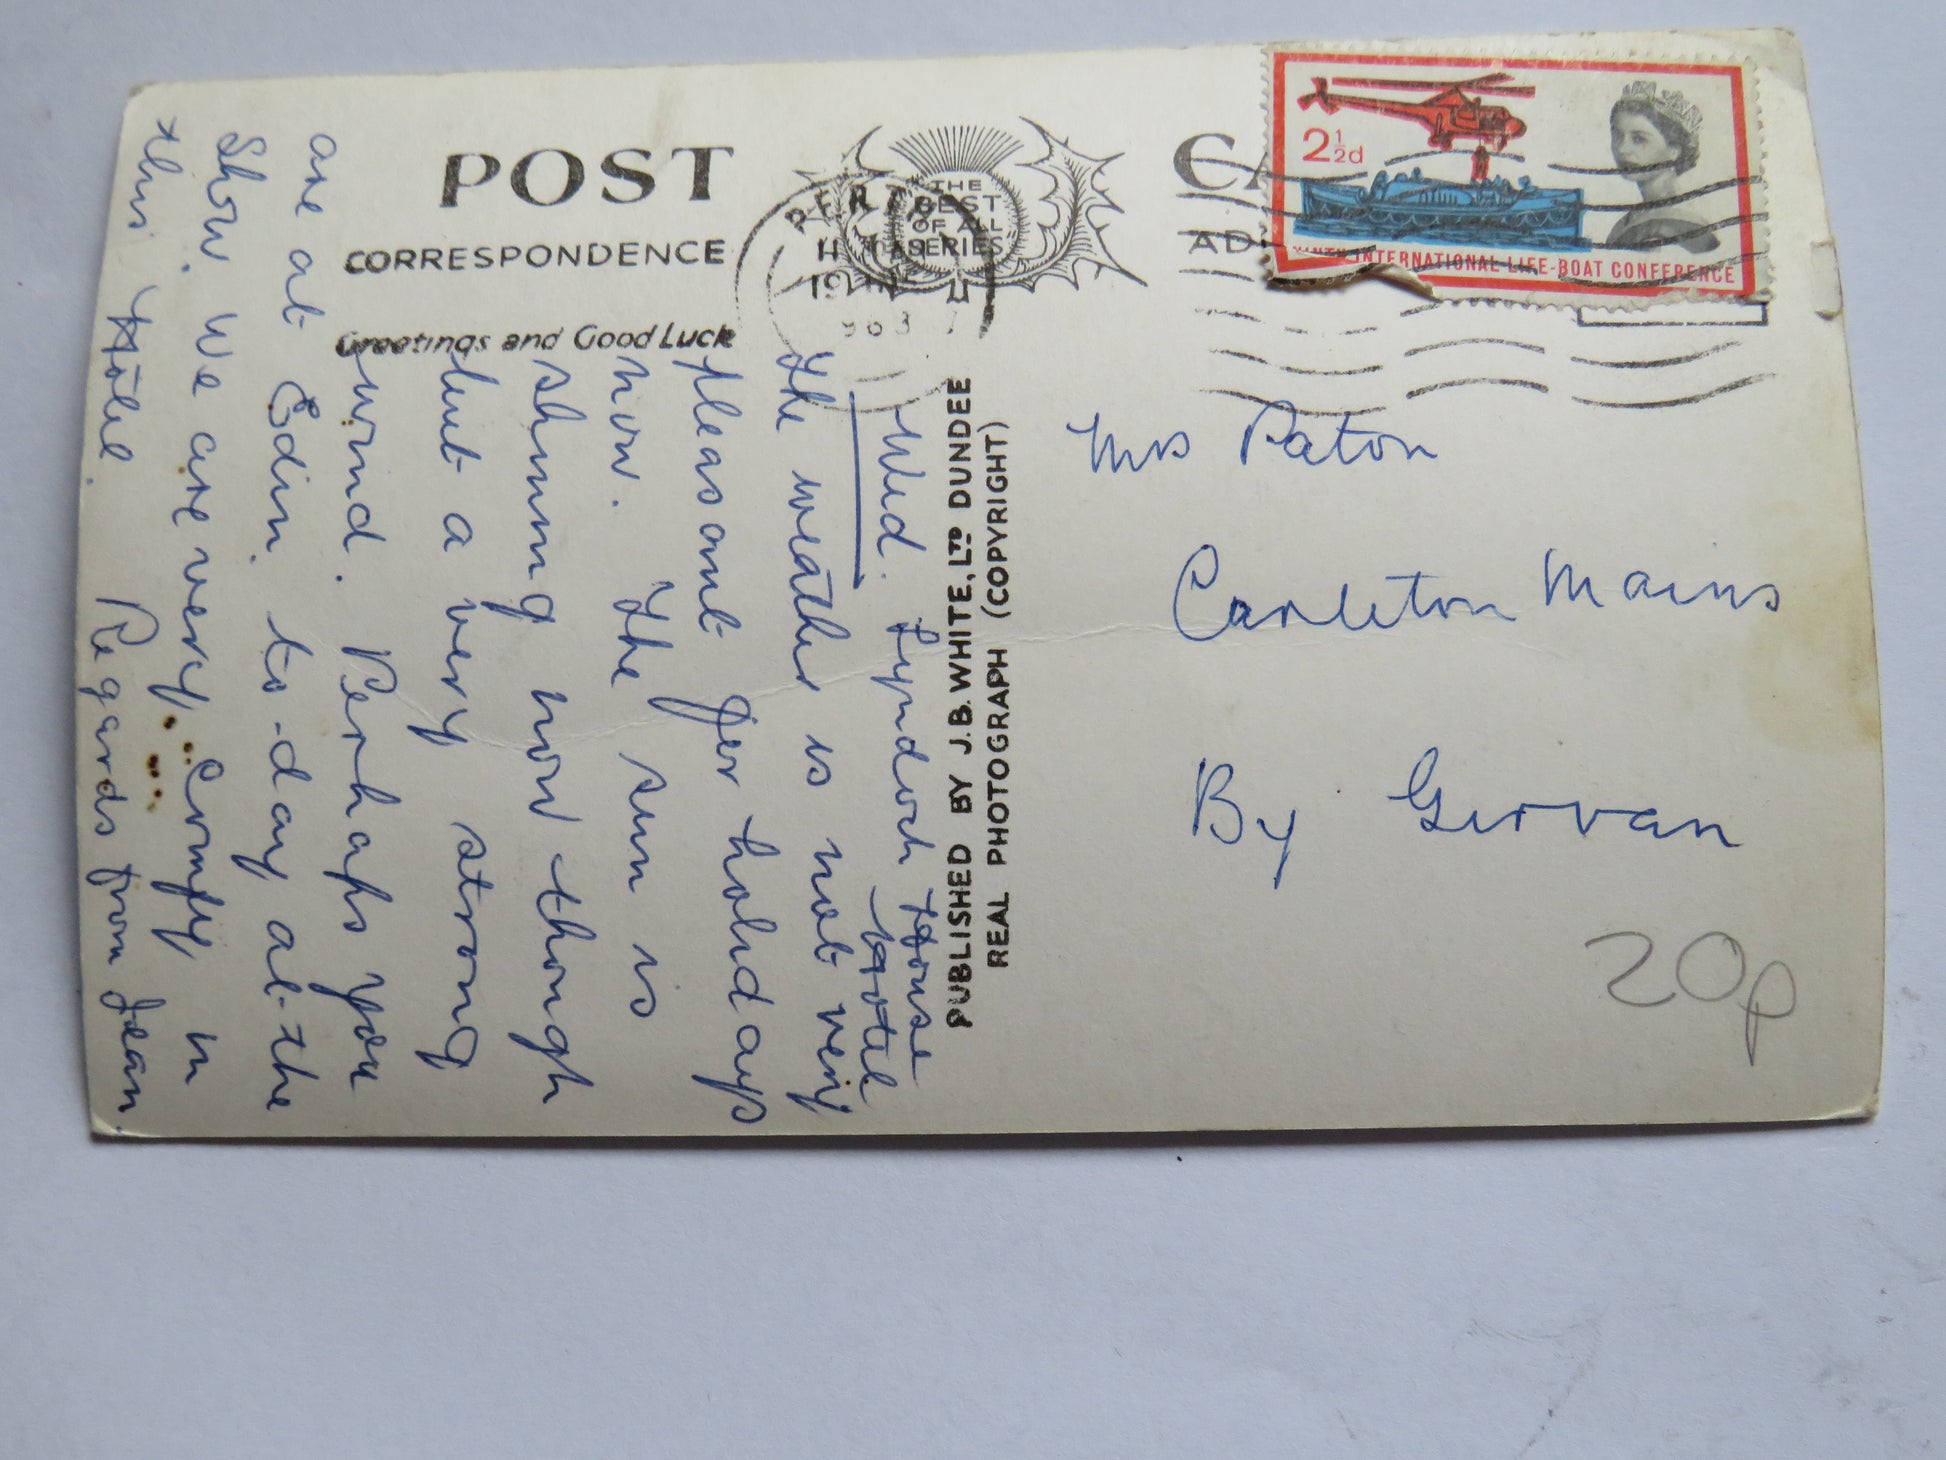 POST
CORRESPONDENCE
Greetings and Good Luck
THE
BEST
OF ALL
SERIES
PERTH
1963
2½d
INTERNATIONAL LIFE-BOAT CONFERENCE
PUBLISHED BY J.B. WHITE, LTD DUNDEE
REAL PHOTOGRAPH (COPYRIGHT)
Wed. Lyndoch House
Hotel
The weather is not very
pleasant for holidays
now. The sun is
shining now though
but a very strong
wind. Perhaps you
are at Edin. to-day at the
Show. We are very comfy in
this Hotel. Regards from Jean.
Mrs Paton
Carleton Mains
By Girvan
20p